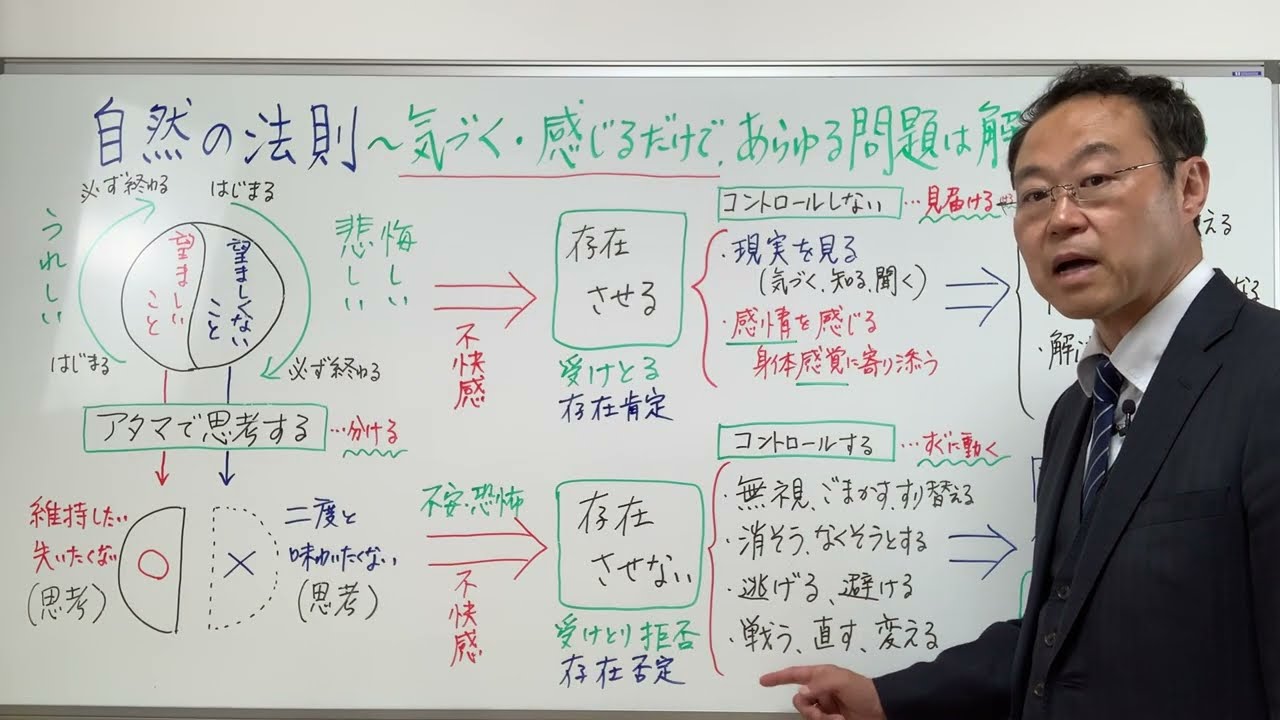 自然の法則～気づく・感じるだけで、あらゆる問題は解
必ず終わる
はじまる
うれしい
望ましい
こと
望ましくない
こと
悲しい
悔しい
はじまる
必ず終わる
アタマで思考する
…分ける
維持したい
失いたくない
(思考)
○
×
二度と
味わいたくない
(思考)
不快感
存在
させる
受けとる
存在肯定
コントロールしない
…見届ける
・現実を見る
(気づく、知る、聞く)
・感情を感じる
身体感覚に寄り添う
不安・恐怖
不快感
存在
させない
受けとり拒否
存在否定
コントロールする
…すぐに動く
・無視、ごまかす、すり替える
・消そう、なくそうとする
・逃げる、避ける
・戦う、直す、変える
える
なる
・解